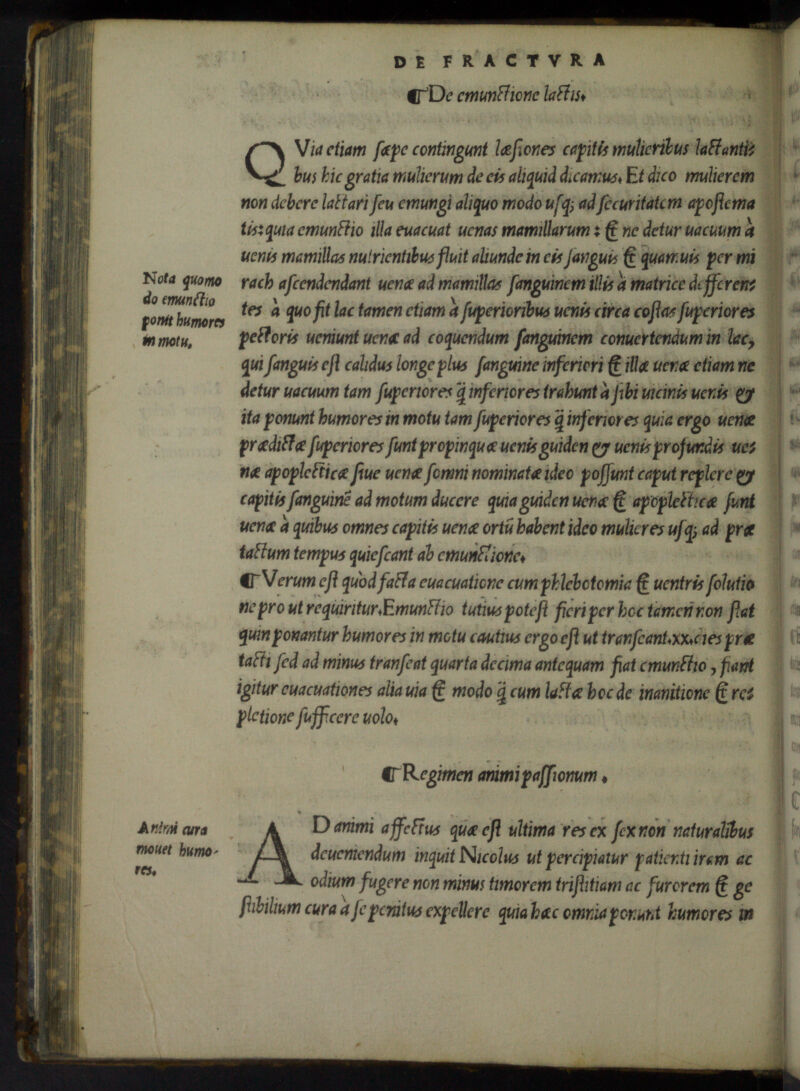 DE FRACTVRA
❡De emunctione lactis.
QVia etiam sæpe contingunt læsiones capitis mulieribus lactantis
bus hic gratia mulierum de eis aliquid dicamus. Et dico mulierem
non debere lactari seu emungi aliquo modo usq; ad securitatem apostema
tis: quia emunctio illa euacuat uenas mamillarum: & ne detur uacuum a
uenis mamillas nutrientibus fluit aliunde in eis sanguis & quamuis per mi
rach ascendendant uenæ ad mamillas sanguinem illis a matrice differens
tes a quo fit lac tamen etiam a superioribus uenis circa costas superiores
pectoris ueniunt uenæ ad coquendum sanguinem conuertendum in lac,
qui sanguis est calidus longe plus sanguine inferiori & illæ uenæ etiam ne
detur uacuum tam superiores q̃ inferiores trahunt a sibi uicinis uenis &
ita ponunt humores in motu tam superiores q̃ inferiores quia ergo uenæ
prædictæ superiores sunt propinquæ uenis guiden & uenis profundis ues
næ apoplecticæ siue uenæ somni nominatæ ideo possunt caput replere &
capitis sanguinē ad motum ducere quia guiden uenæ & apoplecticæ sunt
uenæ a quibus omnes capitis uenæ ortū habent ideo mulieres usq; ad præ
tactum tempus quiescant ab emunctione.
❡Verum est quod facta euacuatione cum phlebotomia & uentris solutio
ne pro ut requiritur. Emunctio tutius potest fieri per hoc tamen non stat
quin ponantur humores in motu cautius ergo est ut transeant.xx.dies præ
tacti sed ad minus transeat quarta decima antequam fiat emunctio, fiant
igitur euacuationes alia uia & modo q̃ cum lactæ hoc de inanitione & res
pletione sufficere uolo.
Nota quomo
do emunctio
ponit humores
in motu.
❡Regimen animi passionum.
AD animi affectus quæ est ultima res ex sex non naturalibus
deueniendum inquit Nicolus ut percipiatur patienti iram ac
odium fugere non minus timorem tristitiam ac furorem & ge
stibilium cura a se penitus expellere quia hæc omnia ponunt humores in
Animi cura
mouet humo-
res.